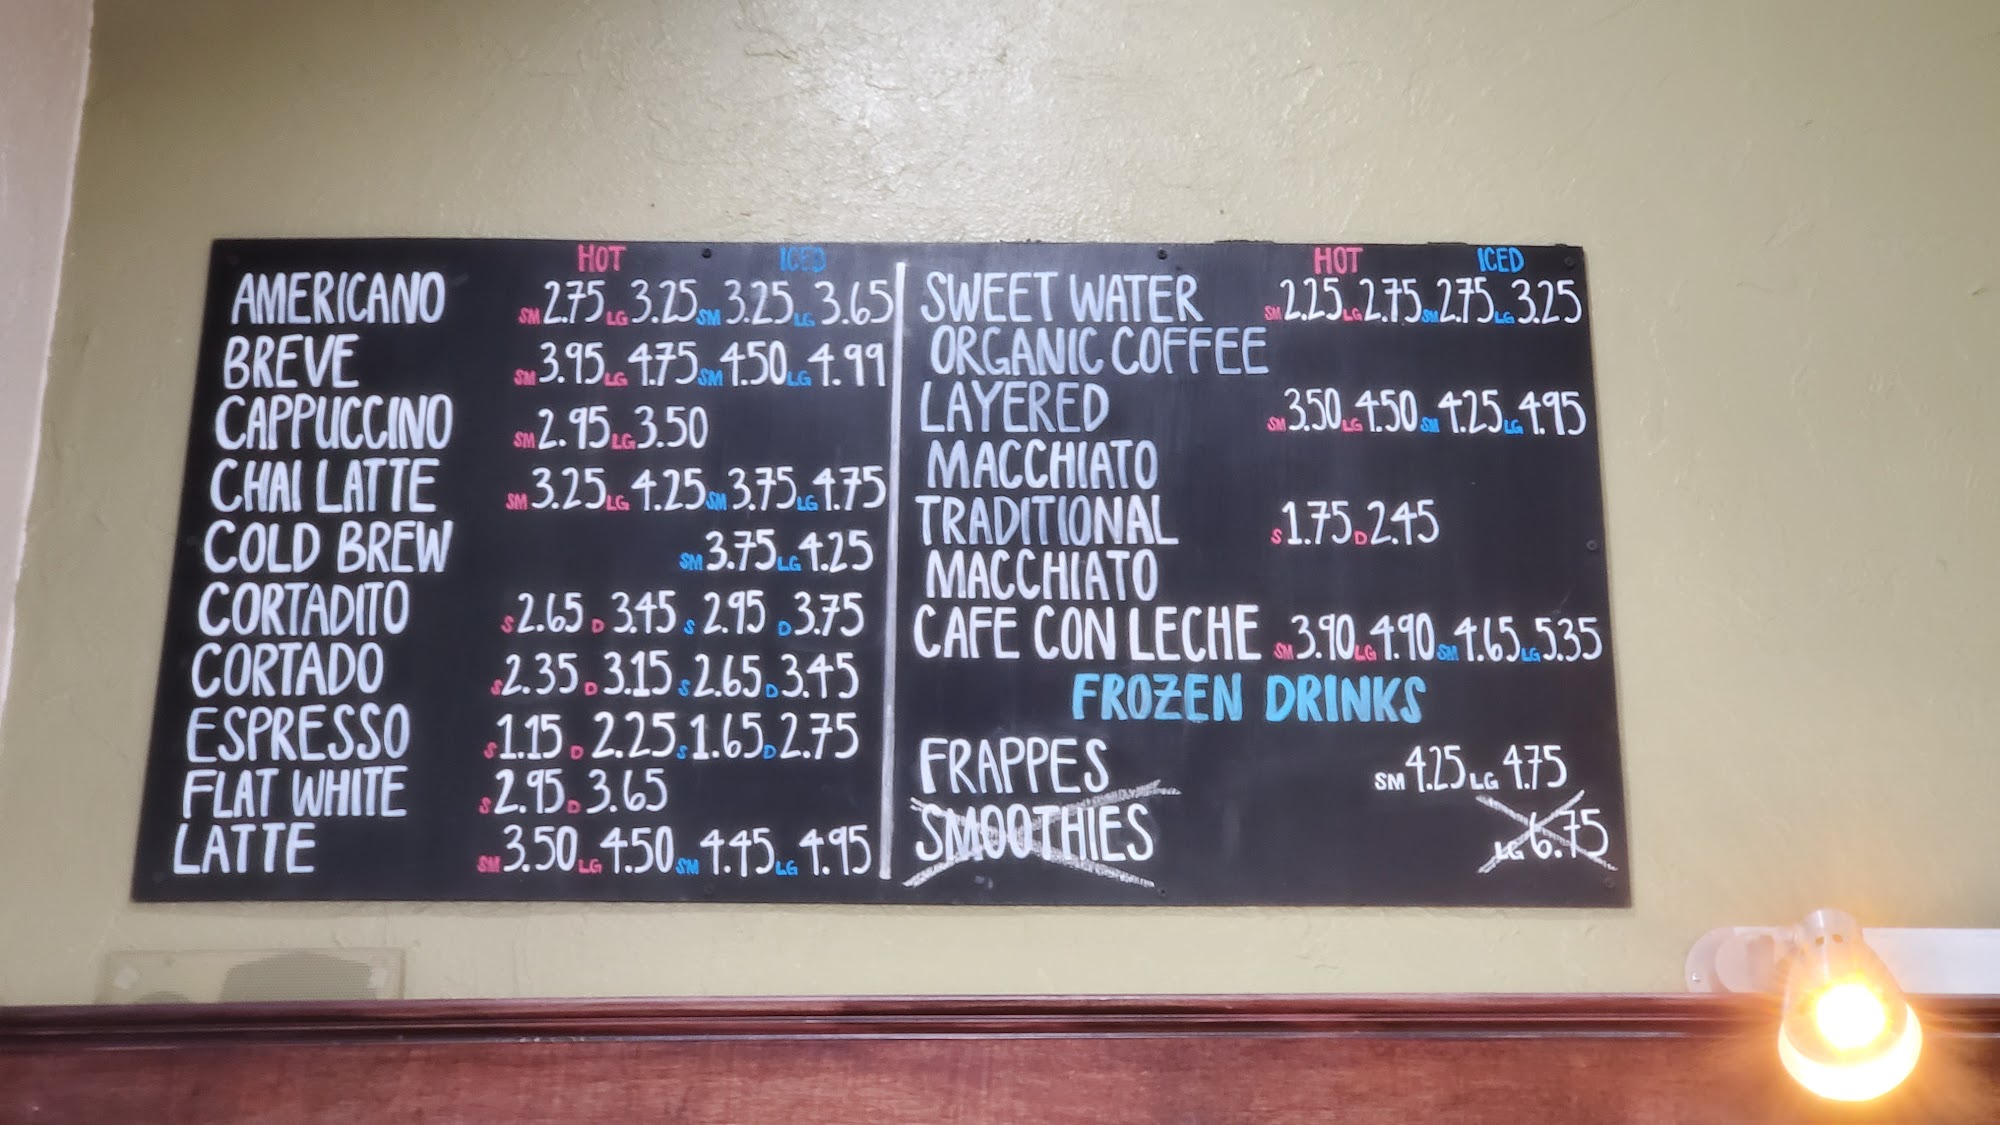 HOT ICED
AMERICANO SM 2.75 LG 3.25 SM 3.25 LG 3.65
BREVE SM 3.95 LG 4.75 SM 4.50 LG 4.99
CAPPUCCINO SM 2.95 LG 3.50
CHAI LATTE SM 3.25 LG 4.25 SM 3.75 LG 4.75
COLD BREW SM 3.75 LG 4.25
CORTADITO S 2.65 D 3.45 S 2.95 D 3.75
CORTADO S 2.35 D 3.15 S 2.65 D 3.45
ESPRESSO S 1.15 D 2.25 S 1.65 D 2.75
FLAT WHITE S 2.95 D 3.65
LATTE SM 3.50 LG 4.50 SM 4.45 LG 4.95
HOT ICED
SWEET WATER SM 2.25 LG 2.75 SM 2.75 LG 3.25
ORGANIC COFFEE
LAYERED SM 3.50 LG 4.50 SM 4.25 LG 4.95
MACCHIATO
TRADITIONAL S 1.75 D 2.45
MACCHIATO
CAFE CON LECHE SM 3.90 LG 4.90 SM 4.65 LG 5.35
FROZEN DRINKS
FRAPPES SM 4.25 LG 4.75
SMOOTHIES LG 6.75